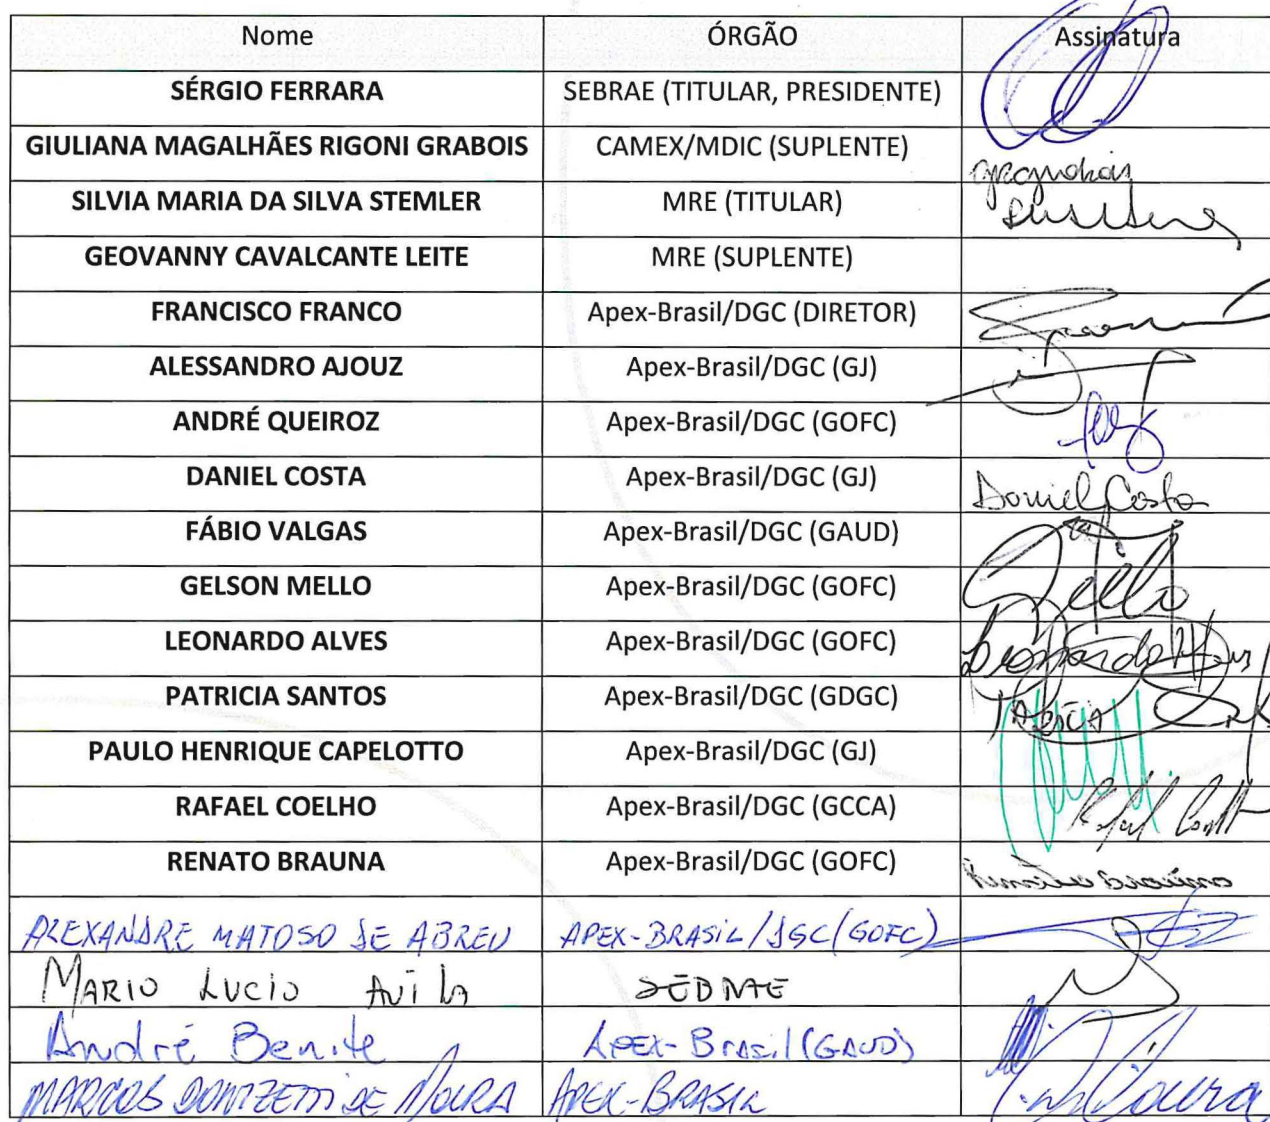 Nome ÓRGÃO Assinatura
SÉRGIO FERRARA SEBRAE (TITULAR, PRESIDENTE)
GIULIANA MAGALHÃES RIGONI GRABOIS CAMEX/MDIC (SUPLENTE)
SILVIA MARIA DA SILVA STEMLER MRE (TITULAR)
GEOVANNY CAVALCANTE LEITE MRE (SUPLENTE)
FRANCISCO FRANCO Apex-Brasil/DGC (DIRETOR)
ALESSANDRO AJOUZ Apex-Brasil/DGC (GJ)
ANDRÉ QUEIROZ Apex-Brasil/DGC (GOFC)
DANIEL COSTA Apex-Brasil/DGC (GJ) Daniel Costa
FÁBIO VALGAS Apex-Brasil/DGC (GAUD)
GELSON MELLO Apex-Brasil/DGC (GOFC)
LEONARDO ALVES Apex-Brasil/DGC (GOFC) Leonardo Alves
PATRICIA SANTOS Apex-Brasil/DGC (GDGC)
PAULO HENRIQUE CAPELOTTO Apex-Brasil/DGC (GJ)
RAFAEL COELHO Apex-Brasil/DGC (GCCA)
RENATO BRAUNA Apex-Brasil/DGC (GOFC) Renato Brauna
ALEXANDRE MATOSO DE ABREU APEX-BRASIL/DGC(GOFC)
MARIO LUCIO AVILA SEBRAE
André Benite APEX-BRASIL (GAUD)
MARCOS DONIZETTI DE MOURA APEX-BRASIL Moura